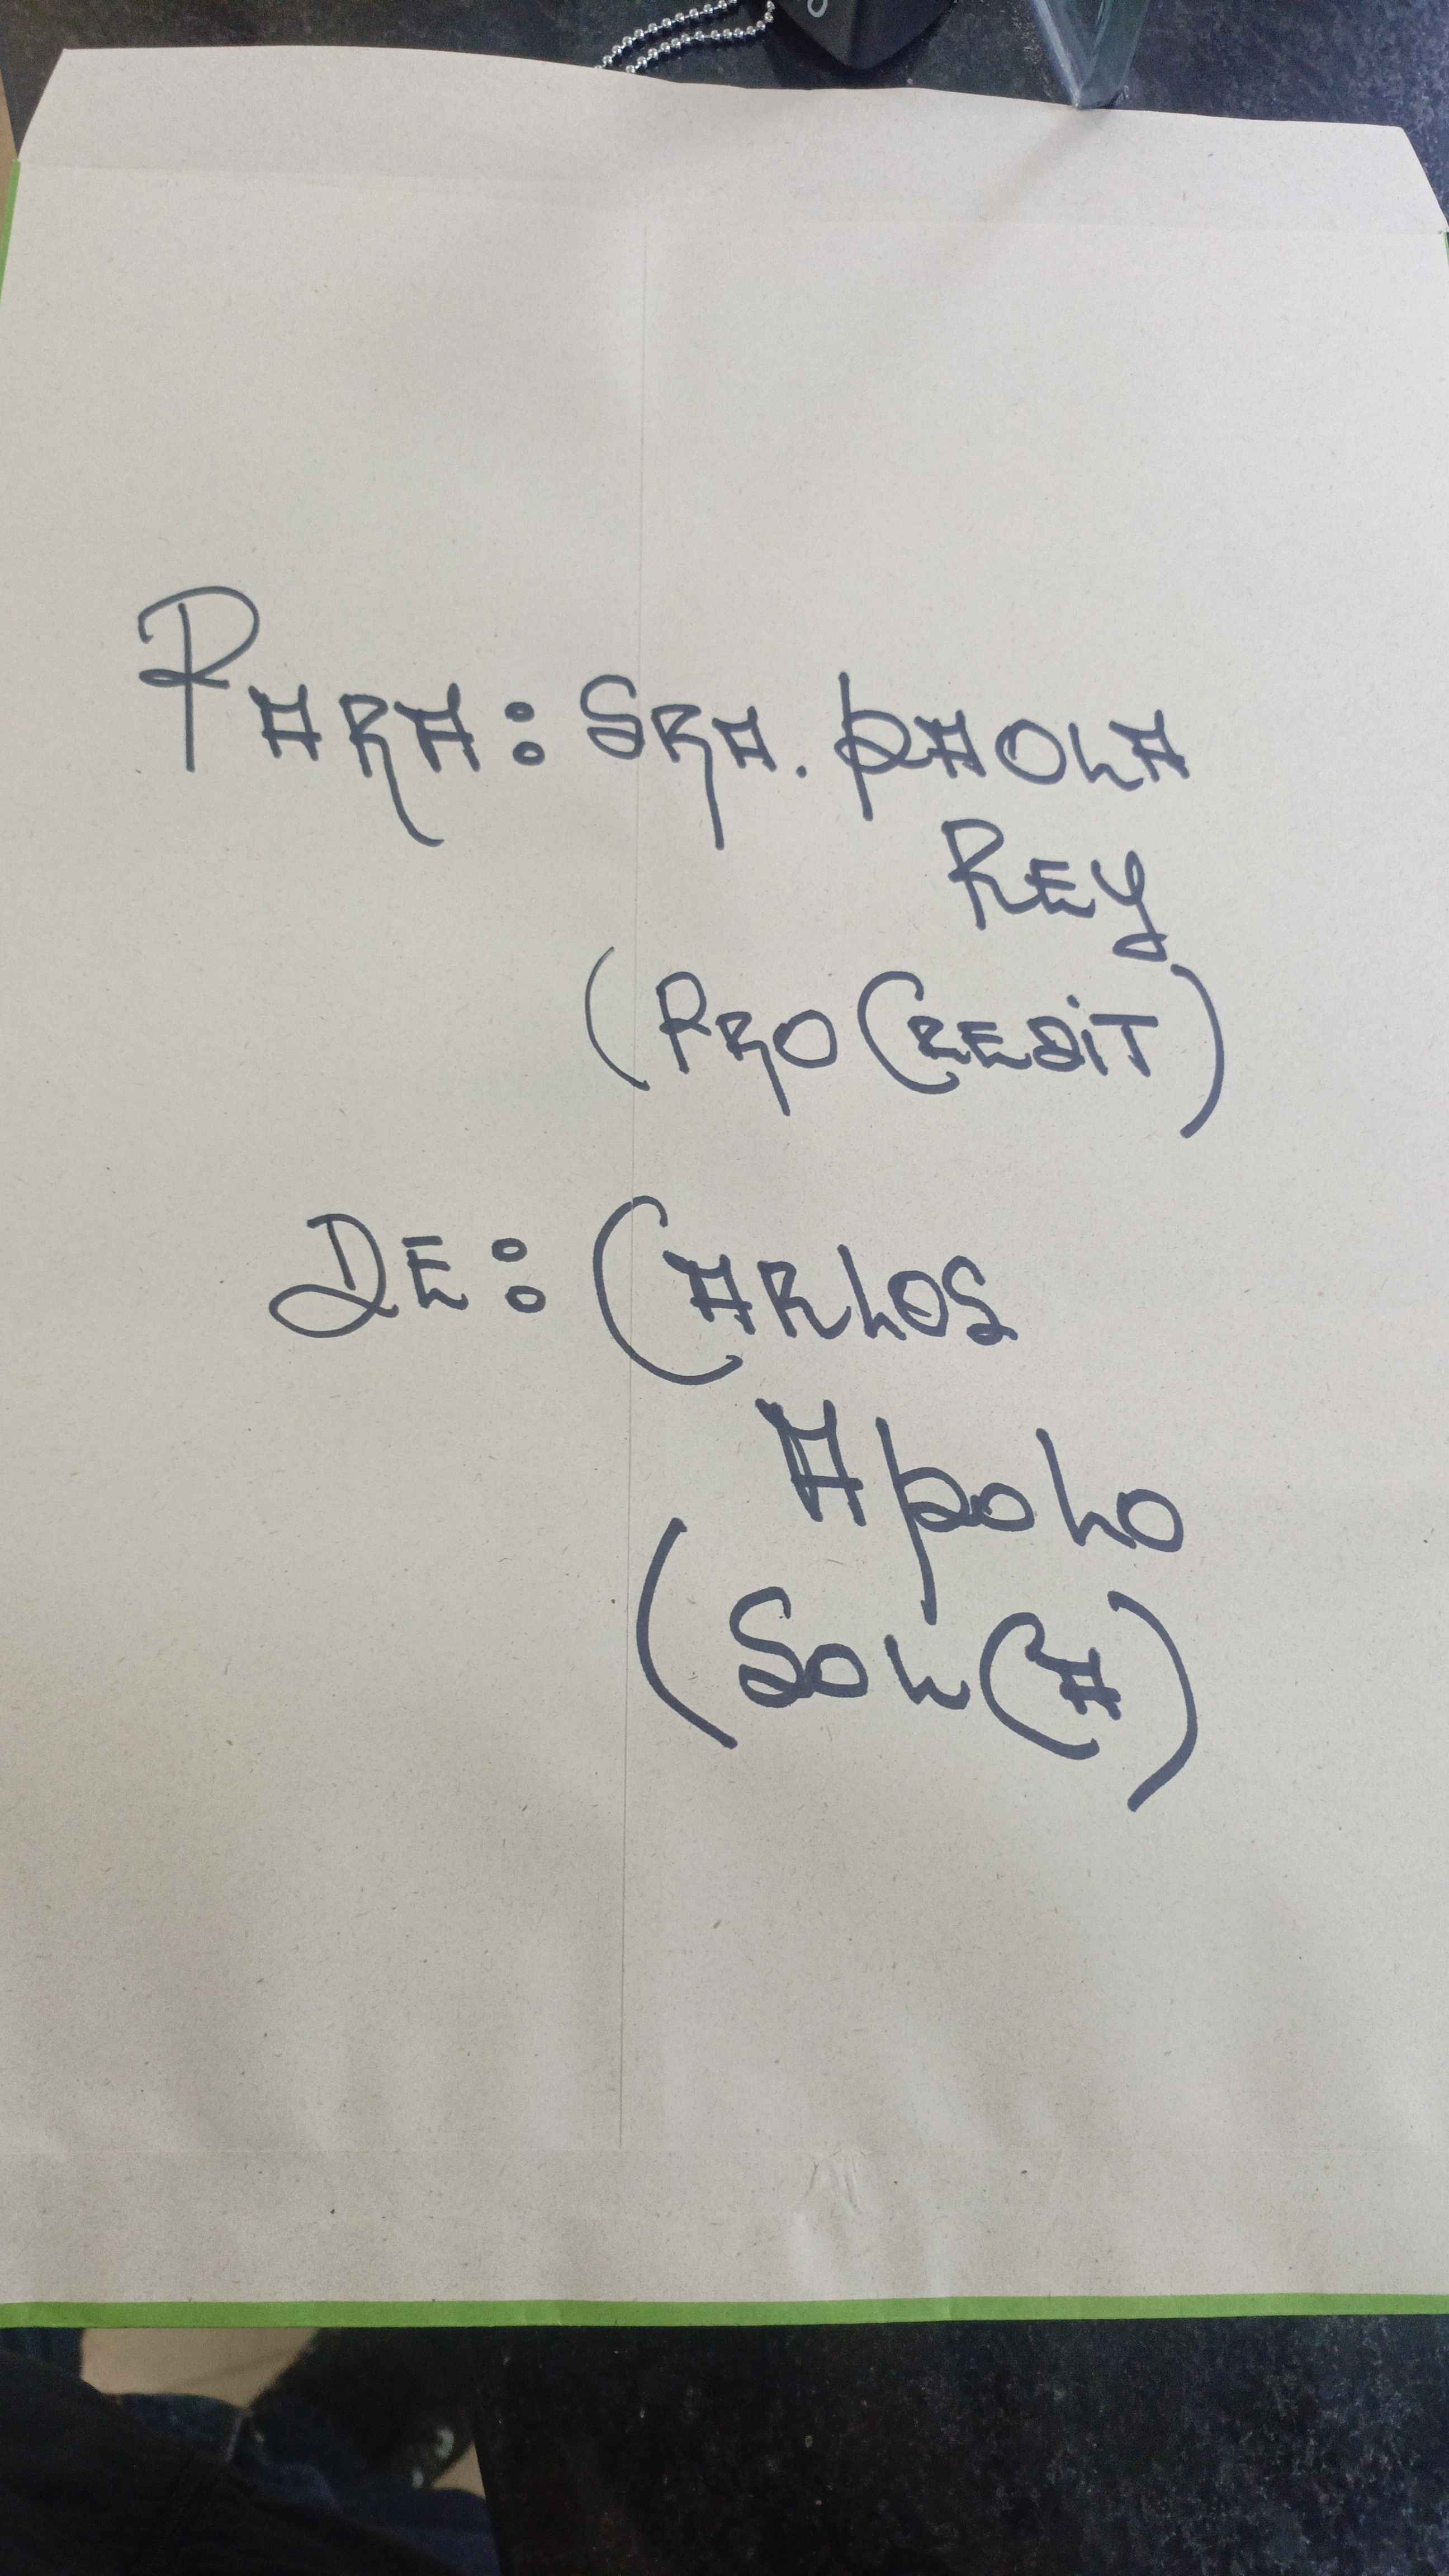 PARA: SRA. PAOLA
REY
(PROCREDIT)
DE: CARLOS
APOLO
(SOLCA)